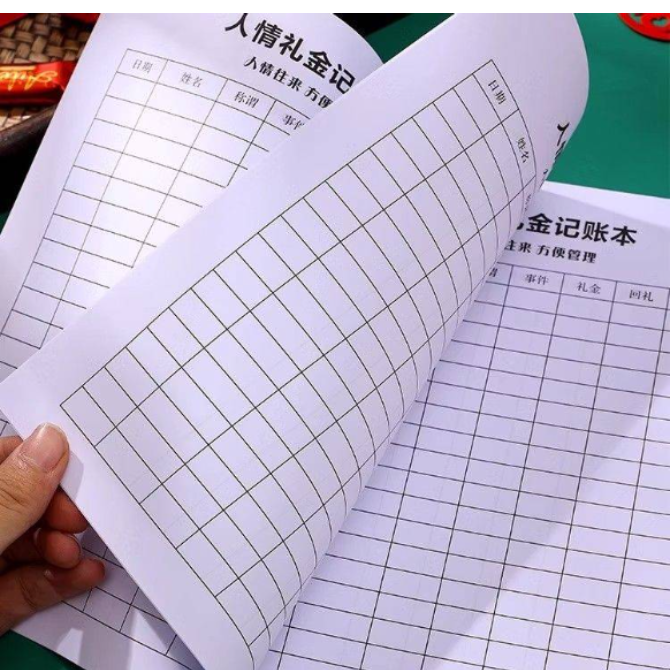 人情礼金记
人情往来 方便
日期 姓名 称谓 事件
日期 姓名
金记账本
往来 方便管理
事件 礼金 回礼